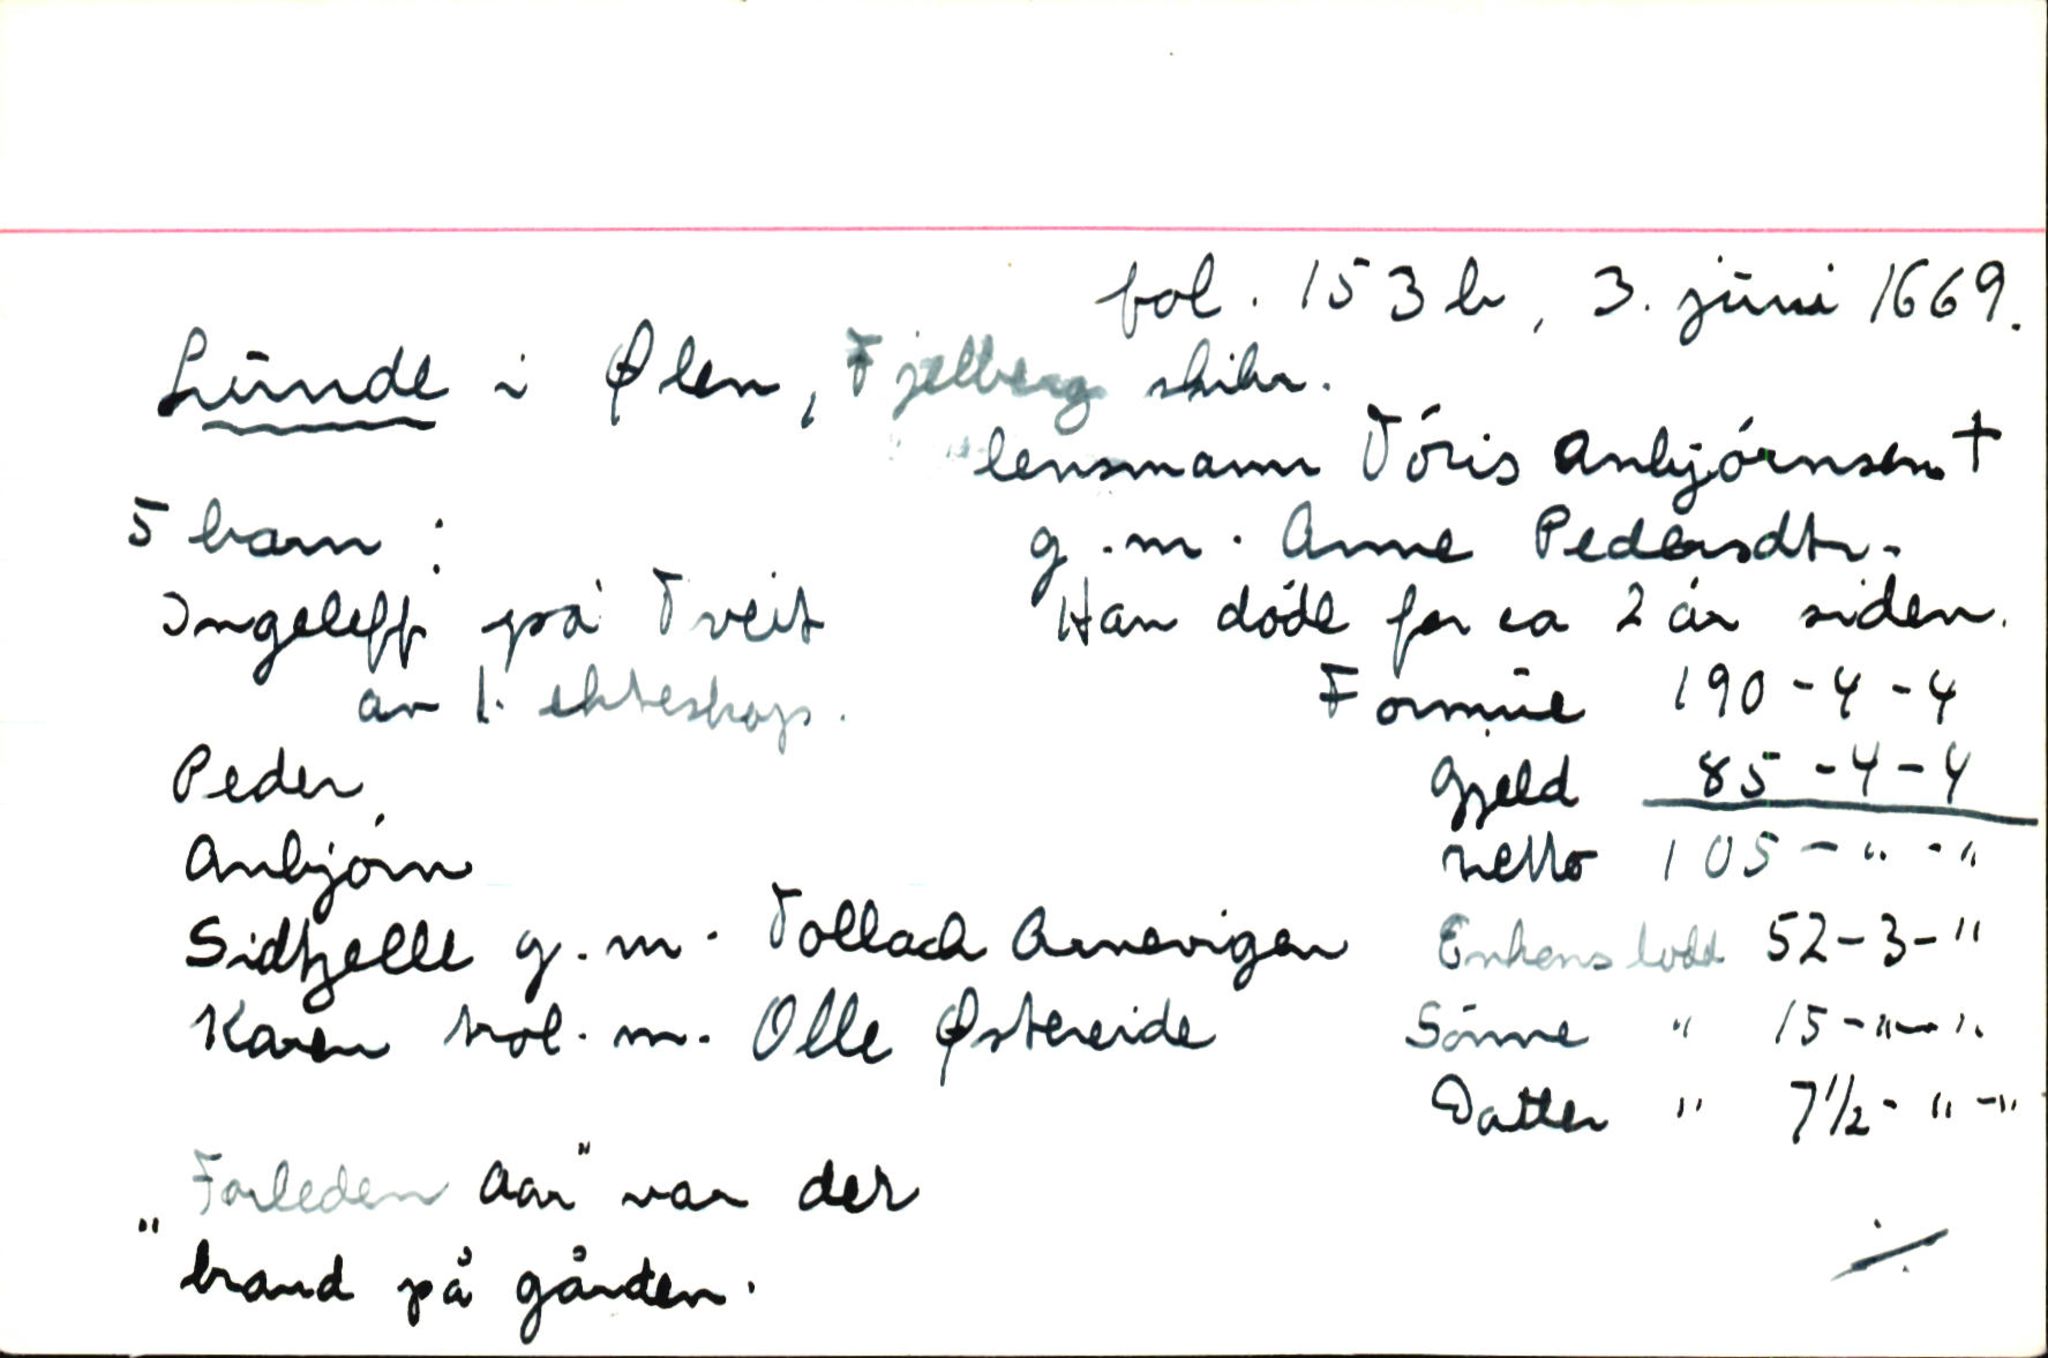 fol. 153 b, 3. juni 1669.
Lunde i Ølen, Fjelberg skibr.
lensmann Tóris Anbjórnsen †
5 barn :
g.m. Anne Pedersdtr.
Ingeleff på Tveit
Han døde for ca 2 år siden.
av 1. ekteskap.
Formue 190 - 4 - 4
Peder
Gjeld 85 - 4 - 4
Anbjórn
netto 105 - " - "
Sidtzelle g.m. Tollach Arnevigen
Enkens lodd 52 - 3 - "
Karen trol. m. Olle Østereide
Sønne " 15 - " - "
Datter " 7½ - " - "
"Forleden Aar" var der
brand på gården.